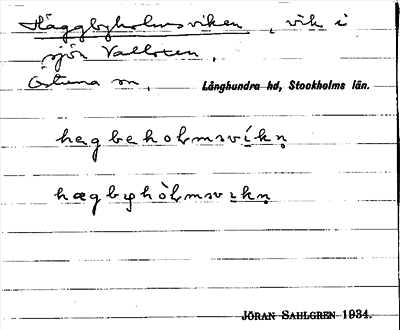 Häggbyholmsviken, vik i
sjön Valloxen,
Östuna sn, Långhundra hd, Stockholms län.
hęgbeholmsvíkņ
hægbyhòlmsvıkņ
JÖRAN SAHLGREN 1934.